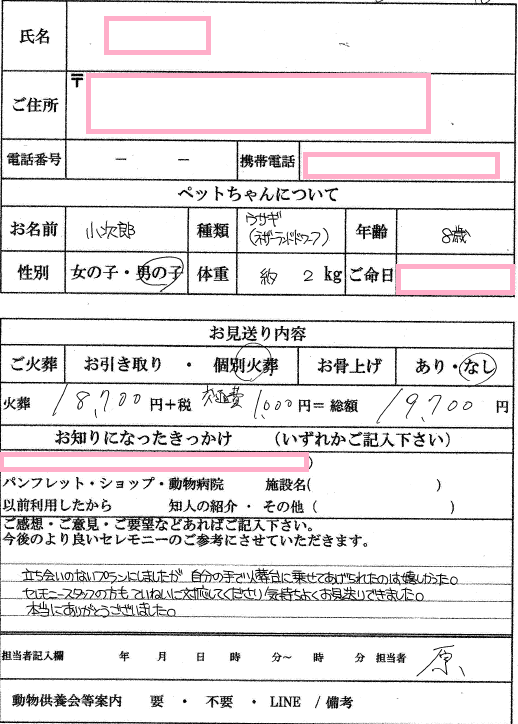 氏名
ご住所 〒
電話番号 － － 携帯電話
ペットちゃんについて
お名前 小次郎 種類 ウサギ (ネザーランドドワーフ) 年齢 8歳
性別 女の子・男の子 体重 約 2 kg ご命日
お見送り内容
ご火葬 お引き取り ・ 個別火葬 お骨上げ あり・なし
火葬 18,700 円+税 交通費 1,000 円= 総額 19,700 円
お知りになったきっかけ （いずれかご記入下さい）
)
パンフレット・ショップ・動物病院 施設名( )
以前利用したから 知人の紹介 ・ その他 ( )
ご感想・ご意見・ご要望などあればご記入下さい。
今後のより良いセレモニーのご参考にさせていただきます。
立ち会いのないプランにしましたが 自分の手で火葬台に乗せてあげられたのは嬉しかった。
セレモニースタッフの方もていねいに対応してくださり気持ちよくお見送りできました。
本当にありがとうございました。
担当者記入欄 年 月 日 時 分～ 時 分 担当者 原
動物供養会等案内 要 ・ 不要 ・ LINE / 備考